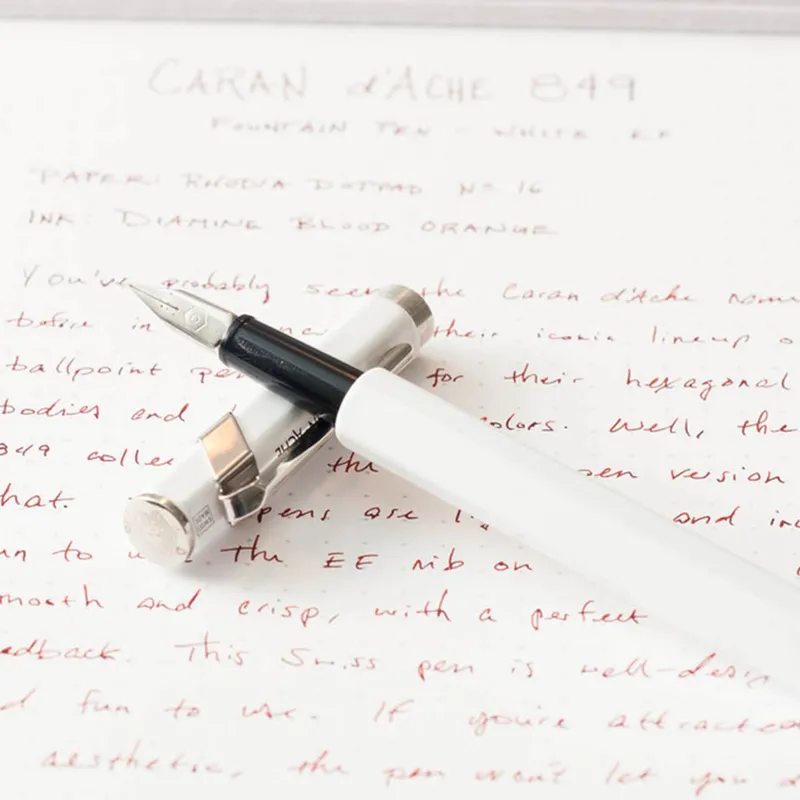 CARAN d'ACHE 849
FOUNTAIN PEN - WHITE EF
PAPER: RHODIA DOTPAD Nº 16
INK: DIAMINE BLOOD ORANGE
You've probably seen the Caran d'Ache name
before in their iconic lineup o
ballpoint pe for their hexagonal
bodies and colors. Well, the
849 collec the pen version
that. pens are li and inc
un to use the EF nib on
mooth and crisp, with a perfect
edback. This Swiss pen is well-desig
d fun to use. If you're attracted
aesthetic, the pen won't let you d